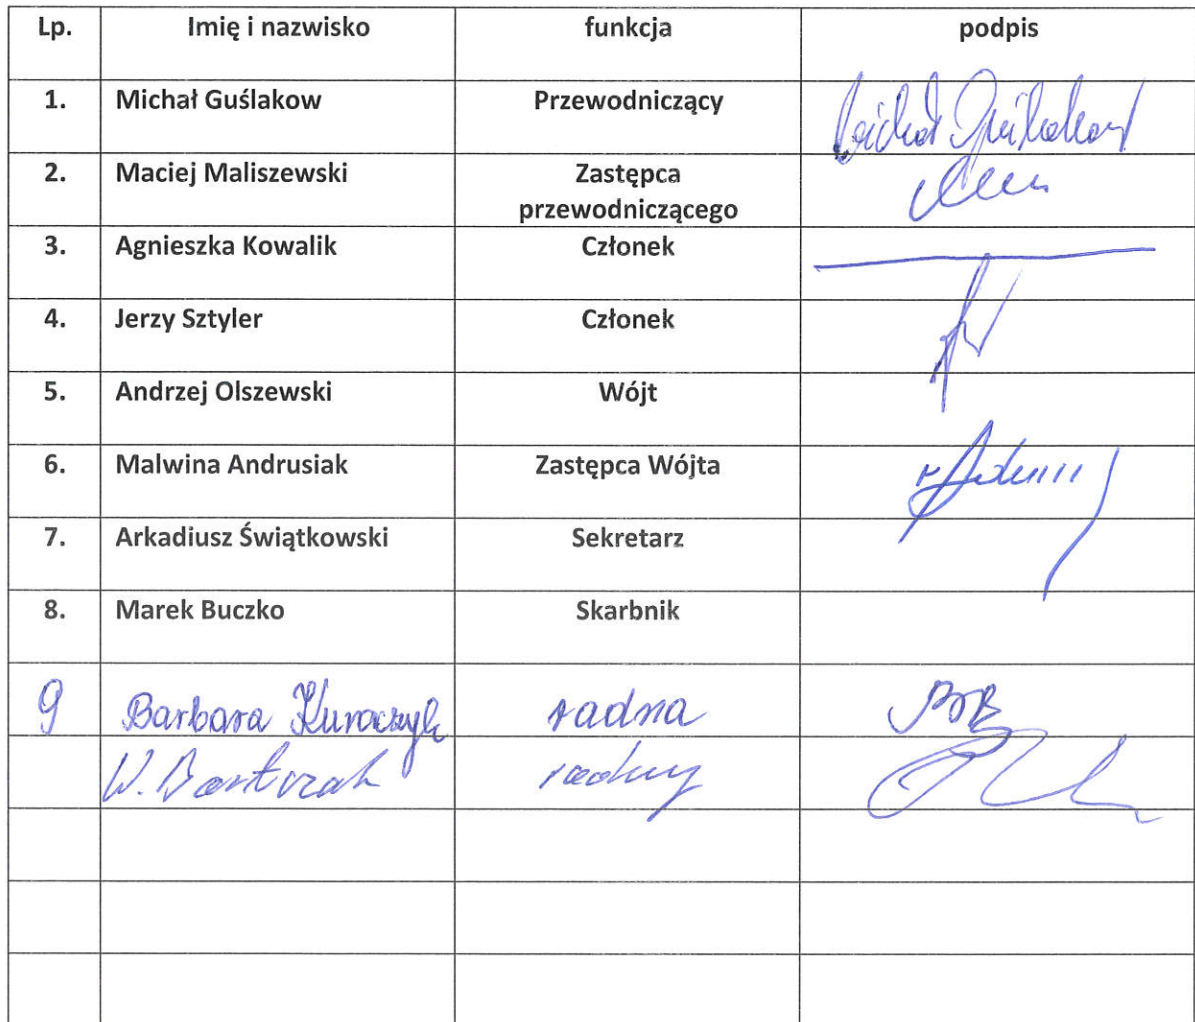 Lp. Imię i nazwisko funkcja podpis
1. Michał Guślakow Przewodniczący Michał Guślakow
2. Maciej Maliszewski Zastępca
przewodniczącego
3. Agnieszka Kowalik Członek
4. Jerzy Sztyler Członek
5. Andrzej Olszewski Wójt
6. Malwina Andrusiak Zastępca Wójta
7. Arkadiusz Świątkowski Sekretarz
8. Marek Buczko Skarbnik
9 Barbara Kuraczyk radna
W. Bartczak radny